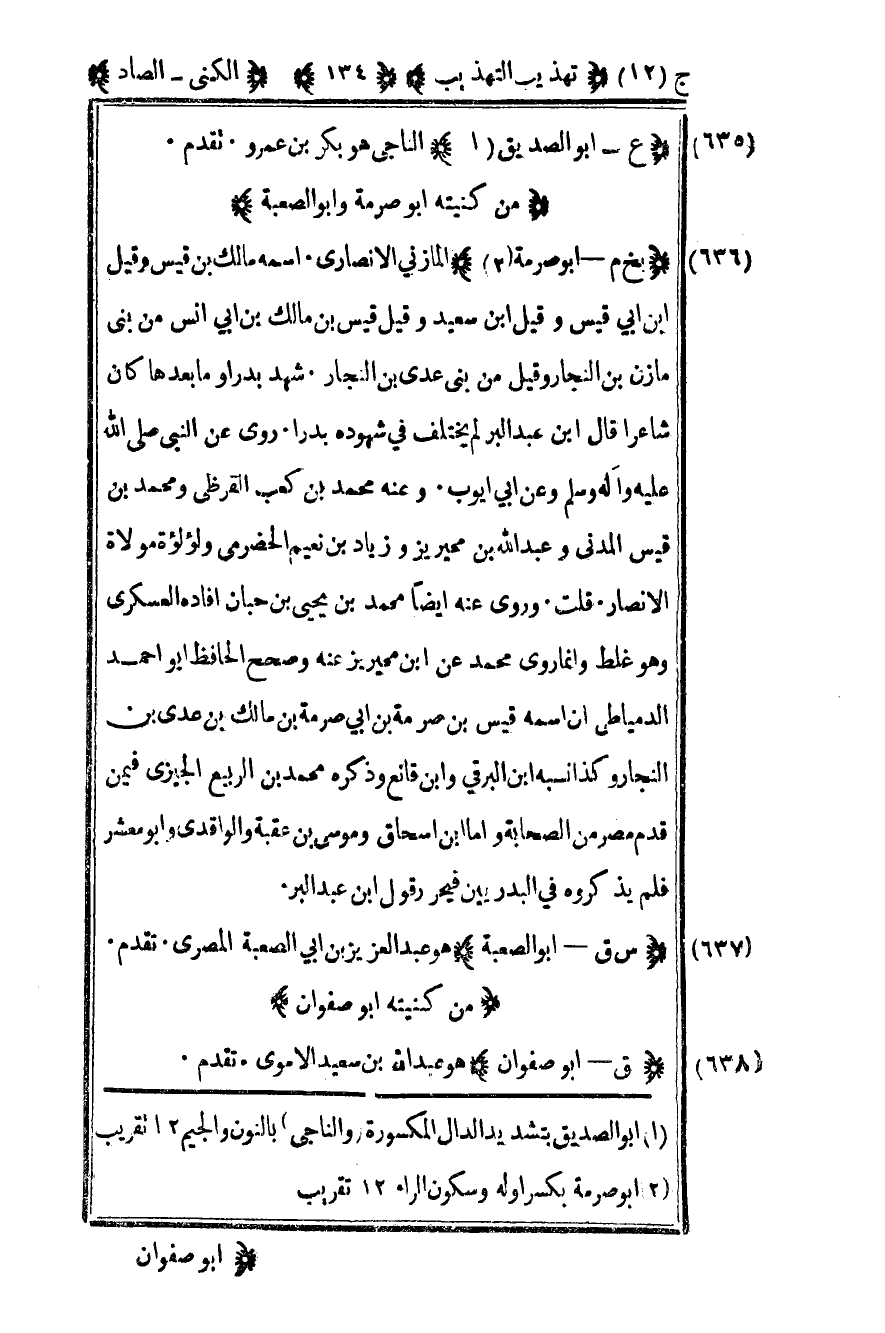 ج (١٢) ﴿ تهذيب التهذيب ﴾ ﴿ ١٣٤ ﴾ ﴿ الكنى ـ الصاد ﴾
(٦٣٥) ﴿ ع ـ ابو الصديق (١) ﴾ الناجى هو بكر بن عمرو · تقدم ·
﴿ من كنيته ابو صرمة وابو الصعبة ﴾
(٦٣٦) ﴿ بخ م — ابو صرمة (٢) ﴾ المازني الانصارى · اسمه مالك بن قيس وقيل
ابن ابي قيس و قيل ابن سعيد و قيل قيس بن مالك بن ابي انس من بنى
مازن بن النجار وقيل من بنى عدى بن النجار · شهد بدرا و ما بعدها كان
شاعرا قال ابن عبد البر لم يختلف في شهوده بدرا · روى عن النبى صلى الله
عليه وآله وسلم وعن ابي ايوب · و عنه محمد بن كعب القرظى ومحمد بن
قيس المدنى و عبد الله بن محيريز و زياد بن نعيم الحضرمى ولؤلؤة مولاة
الانصار · قلت · وروى عنه ايضاً محمد بن يحيى بن حبان افاده العسكرى
وهو غلط وانما روى محمد عن ابن محيريز عنه وصحح الحافظ ابو احمد
الدمياطى ان اسمه قيس بن صرمة بن ابي صرمة بن مالك بن عدى بن
النجار وكذا نسبه ابن البرقي وابن قانع وذكره محمد بن الربيع الجيزى فيمن
قدم مصر من الصحابة و اما ابن اسحاق وموسى بن عقبة والواقدى وابو معشر
فلم يذكروه في البدريين فيحرر قول ابن عبد البر ·
(٦٣٧) ﴿ س ق — ابو الصعبة ﴾ هو عبد العزيز بن ابي الصعبة المصرى · تقدم ·
﴿ من كنيته ابو صفوان ﴾
(٦٣٨) ﴿ ق — ابو صفوان ﴾ هو عبد الله بن سعيد الاموى · تقدم ·
(١) ابو الصديق بتشديد الدال المكسورة (والناجى) بالنون والجيم ١٢ تقريب
(٢) ابو صرمة بكسر اوله وسكون الراء ١٢ تقريب
﴿ ابو صفوان